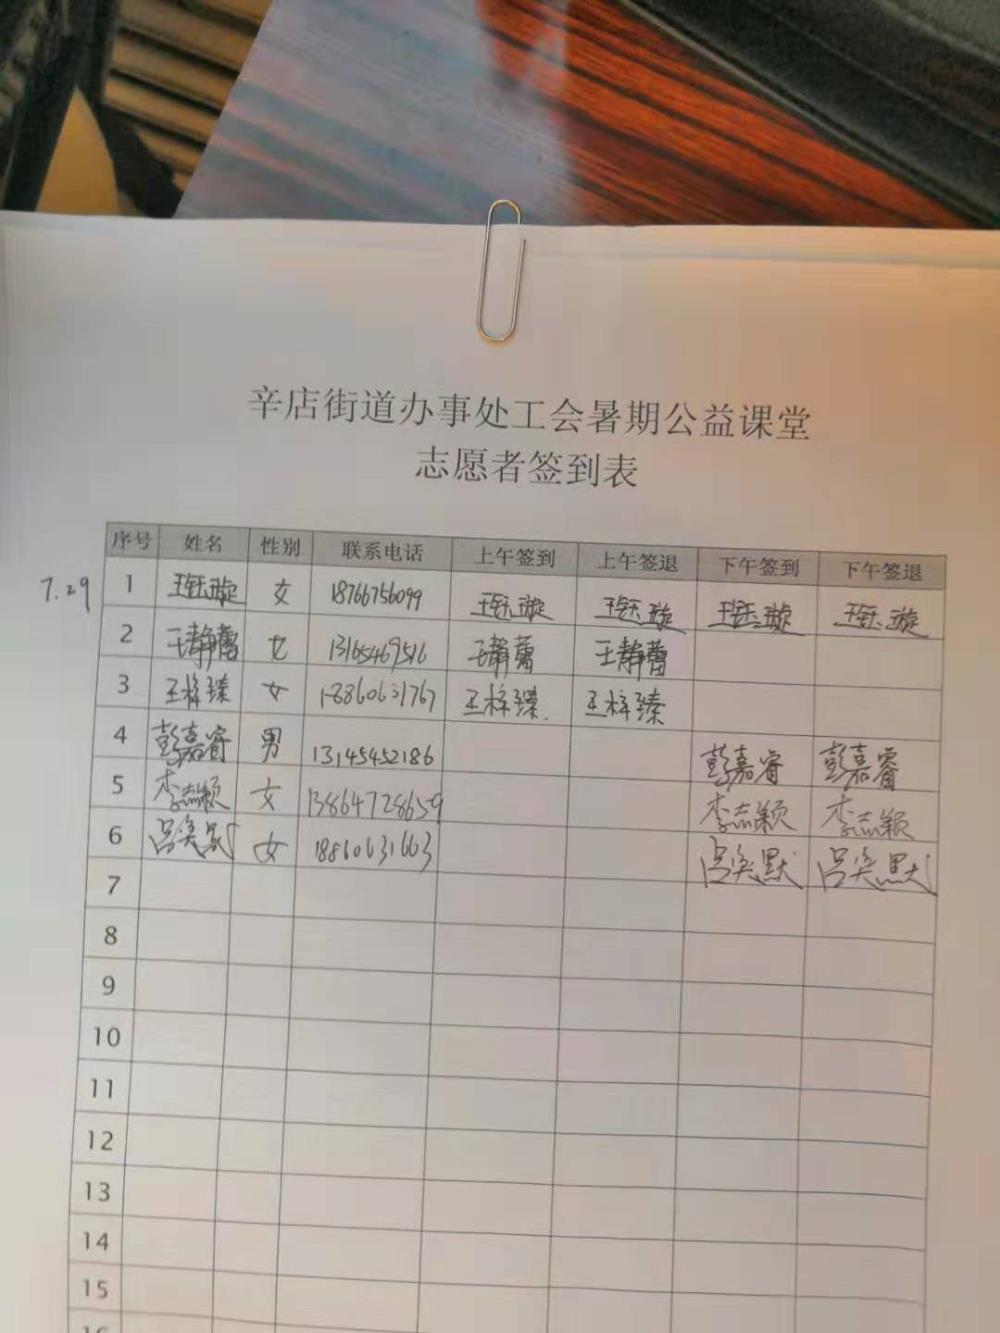 辛店街道办事处工会暑期公益课堂
志愿者签到表
序号 姓名 性别 联系电话 上午签到 上午签退 下午签到 下午签退
7.29 1 王钰璇 女 18766756099 王钰璇 王钰璇 王钰璇 王钰璇
2 王静蕾 女 13165469516 王静蕾 王静蕾
3 王梓臻 女 18860631767 王梓臻 王梓臻
4 彭嘉睿 男 13145452186 彭嘉睿 彭嘉睿
5 李志颖 女 13864728659 李志颖 李志颖
6 吕奂默 女 18860631663 吕奂默 吕奂默
7
8
9
10
11
12
13
14
15
16